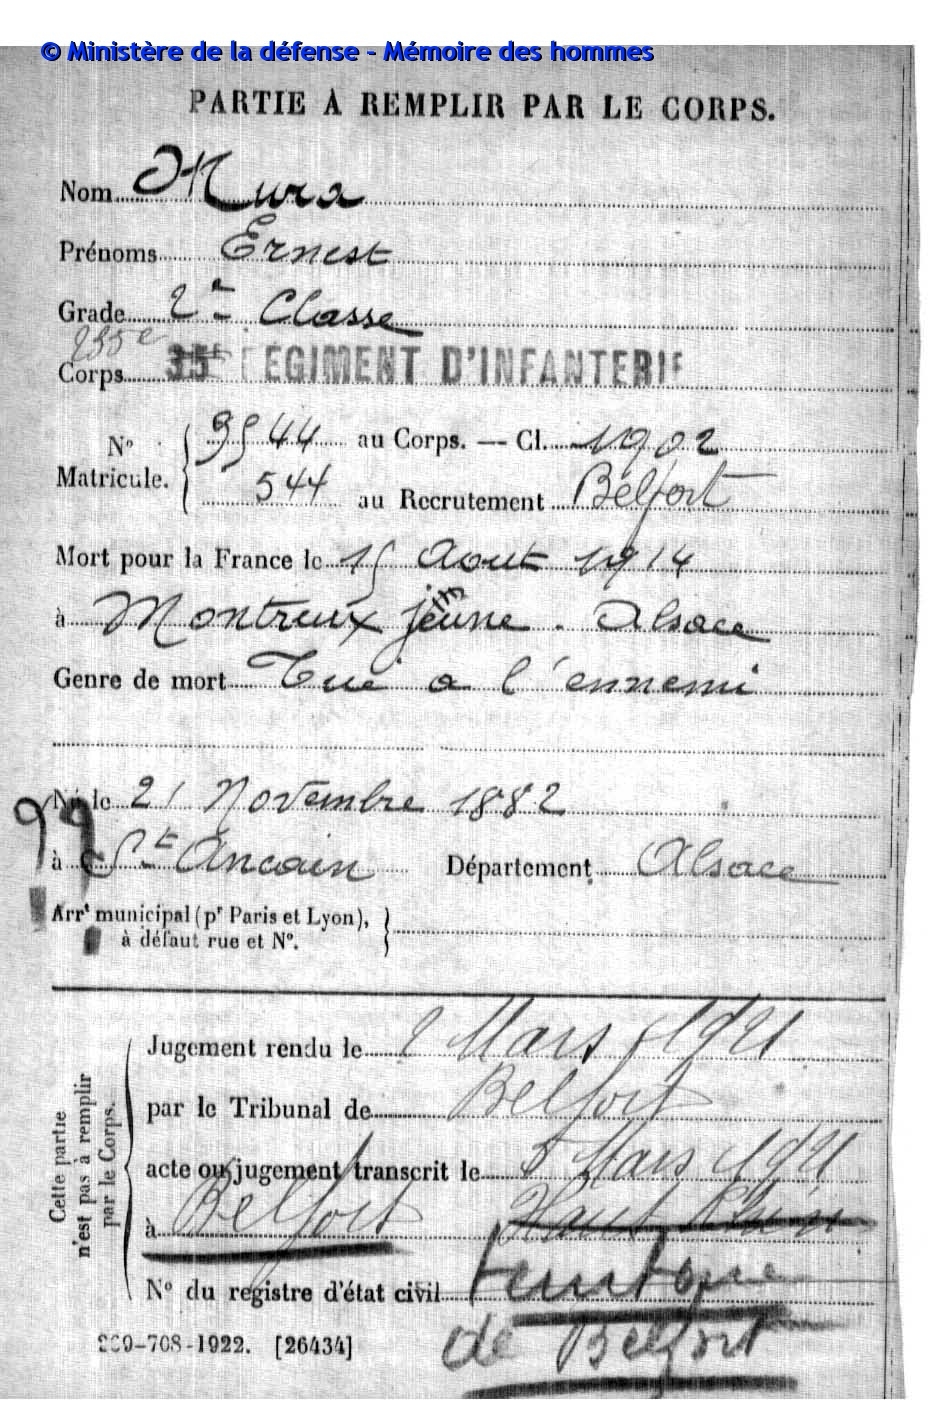 © Ministère de la défense - Mémoire des hommes
PARTIE À REMPLIR PAR LE CORPS.
Nom Mura
Prénoms Ernest
Grade 2e Classe
235e
Corps 35e REGIMENT D'INFANTERIE
N° Matricule. 3544 au Corps. — Cl. 1902
544 au Recrutement Belfort
Mort pour la France le 15 Aout 1914
à Montreux jeune. Alsace
Genre de mort Tué a l'ennemi
Né le 21 Novembre 1882
à St Ancain Département Alsace
99
Arrt municipal (pr Paris et Lyon),
à défaut rue et N°.
Cette partie n'est pas à remplir par le Corps.
Jugement rendu le 2 Mars 1921
par le Tribunal de Belfort
acte ou jugement transcrit le 5 Mars 1921
à Belfort Haut Rhin
N° du registre d'état civil territoire
de Belfort
269-708-1922. [26434]